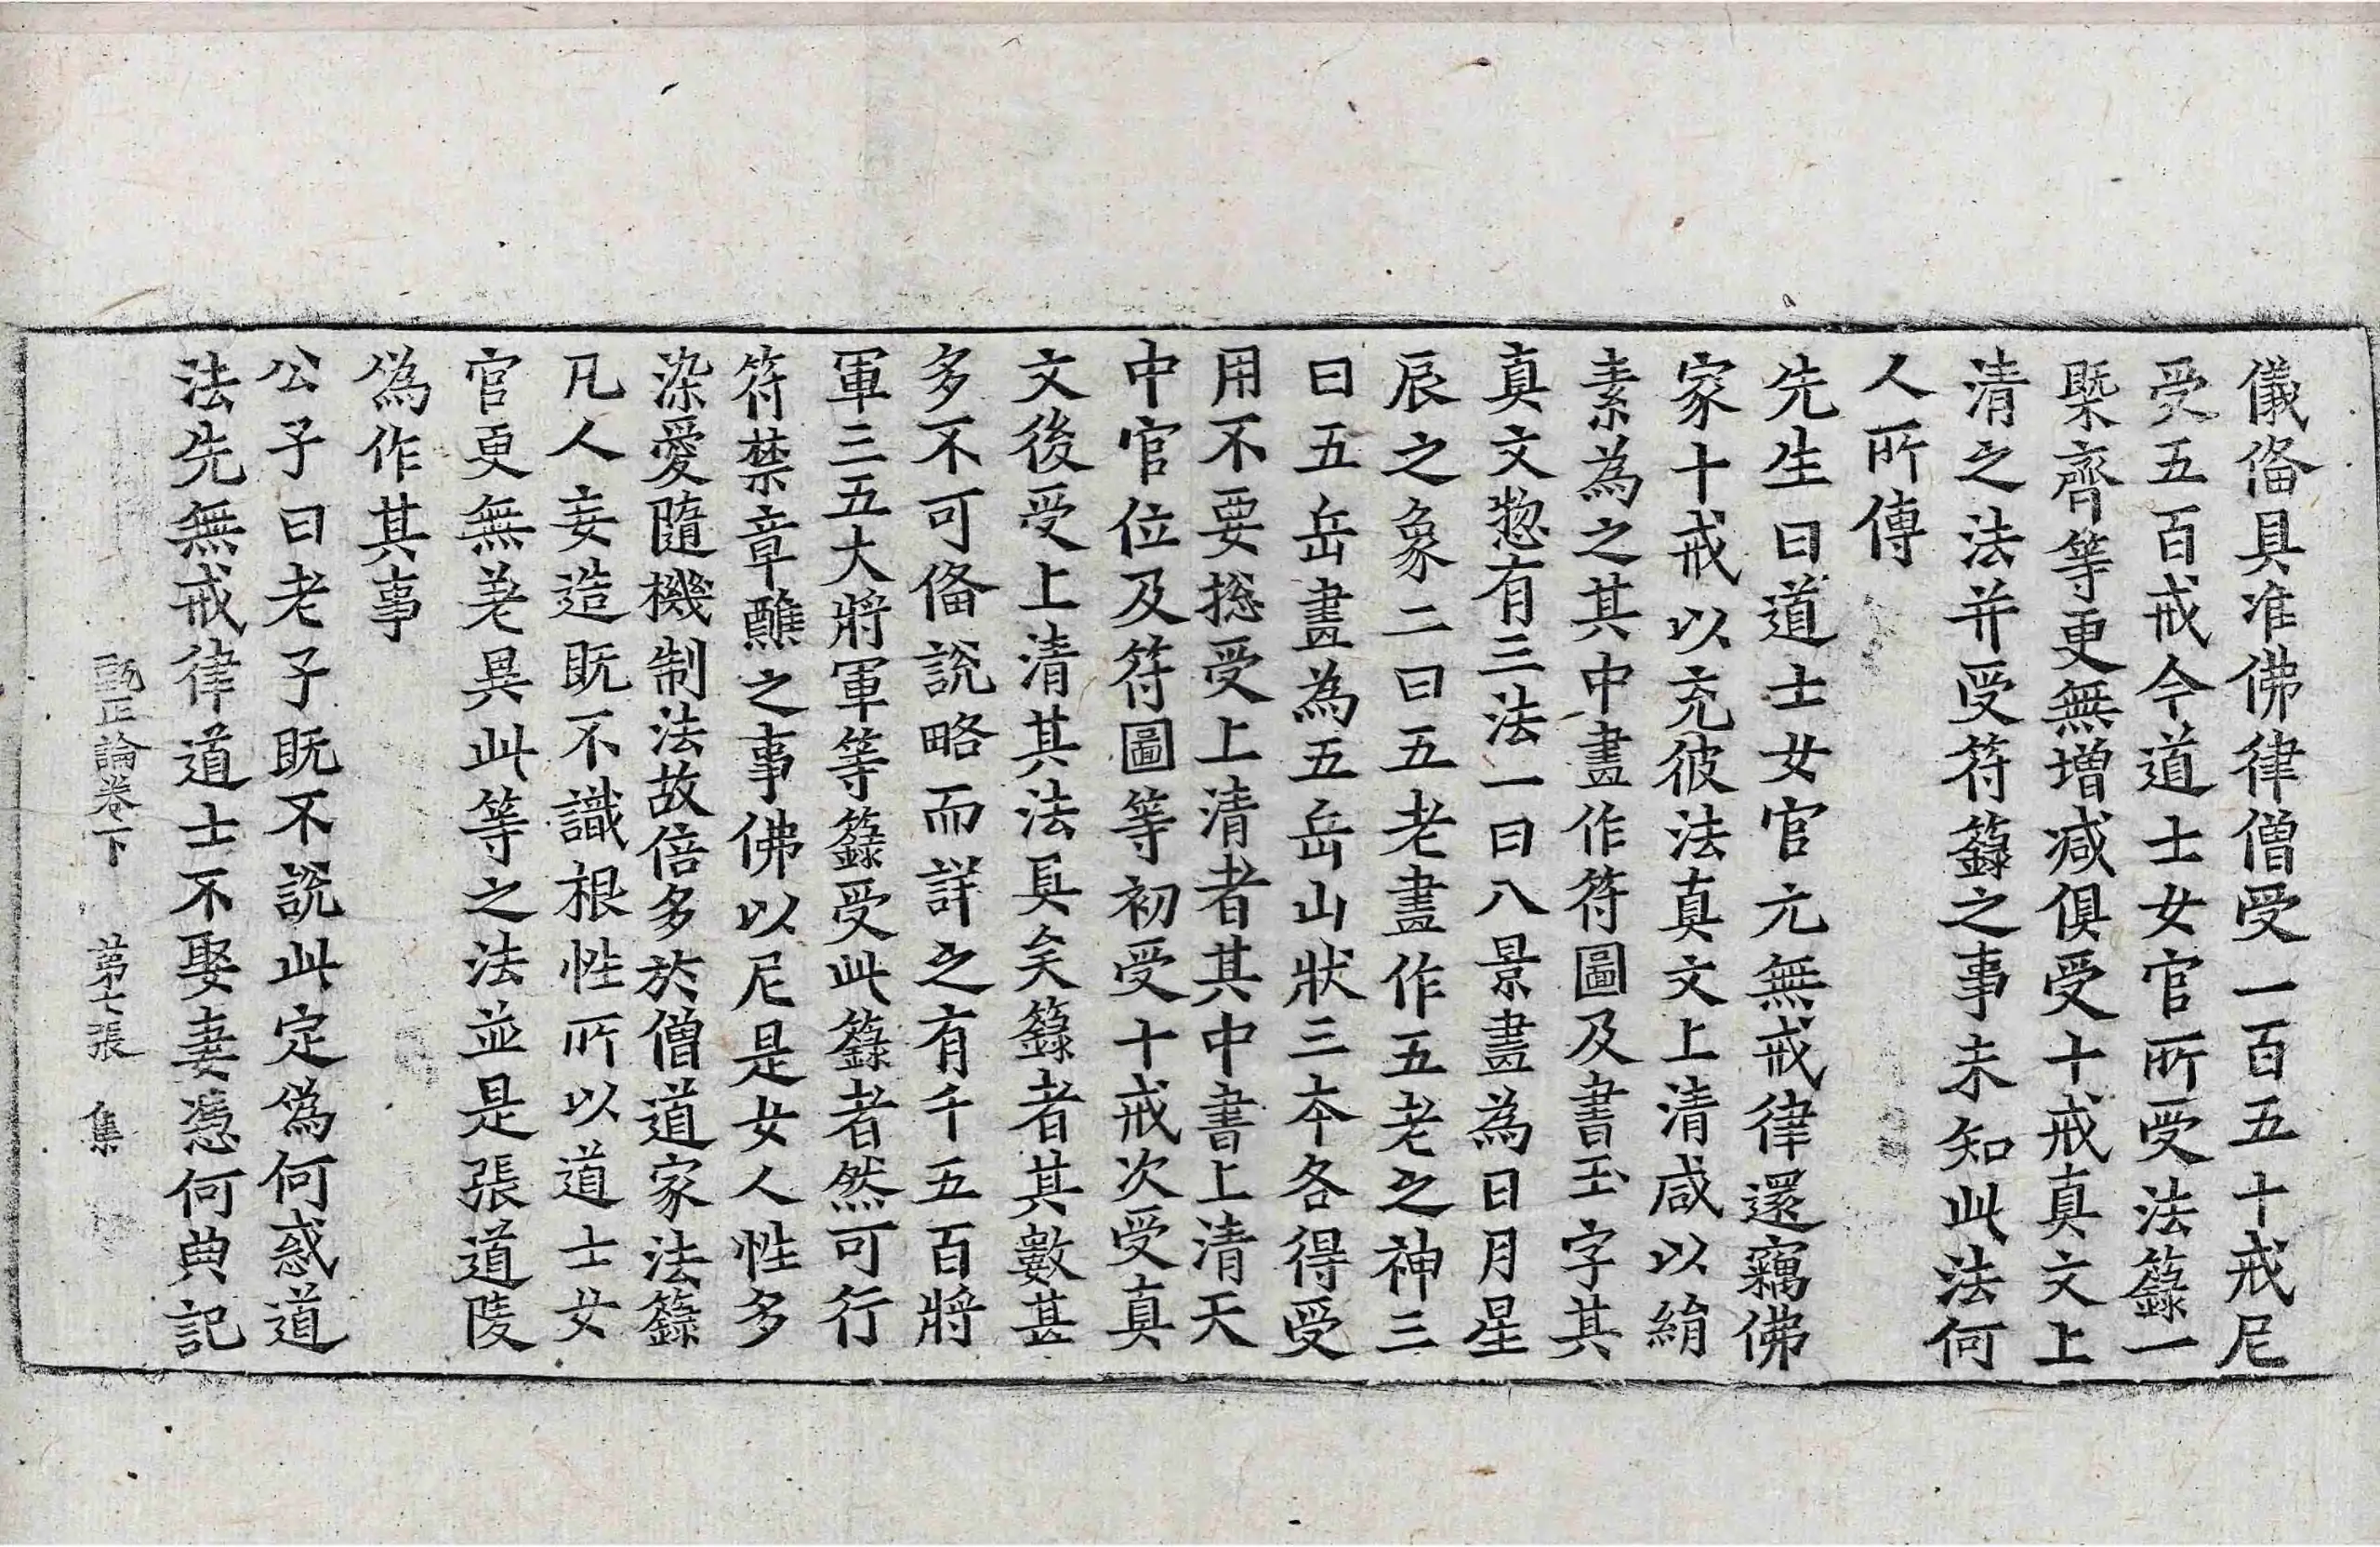 儀俻具准佛律僧受一百五十戒尼
受五百戒今道士女官所受法籙一
槩齊等更無増减俱受十戒真文上
清之法并受符籙之事未知此法何
人所傳
先生曰道士女官元無戒律還竊佛
家十戒以充彼法真文上清咸以絹
素為之其中畫作符圖及書玉字其
真文惣有三法一曰八景畫為日月星
辰之象二曰五老畫作五老之神三
曰五岳畫為五岳山狀三本各得受
用不要捴受上清者其中書上清天
中官位及符圖等初受十戒次受真
文後受上清其法具矣籙者其數甚
多不可俻說略而詳之有千五百將
軍三五大將軍等籙受此籙者然可行
符禁章醮之事佛以尼是女人性多
染愛隨機制法故倍多於僧道家法籙
凡人妄造既不識根性所以道士女
官更無差異此等之法並是張道陵
偽作其事
公子曰老子既不說此定偽何惑道
法先無戒律道士不娶妻憑何典記
甄正論卷下 第七張 集